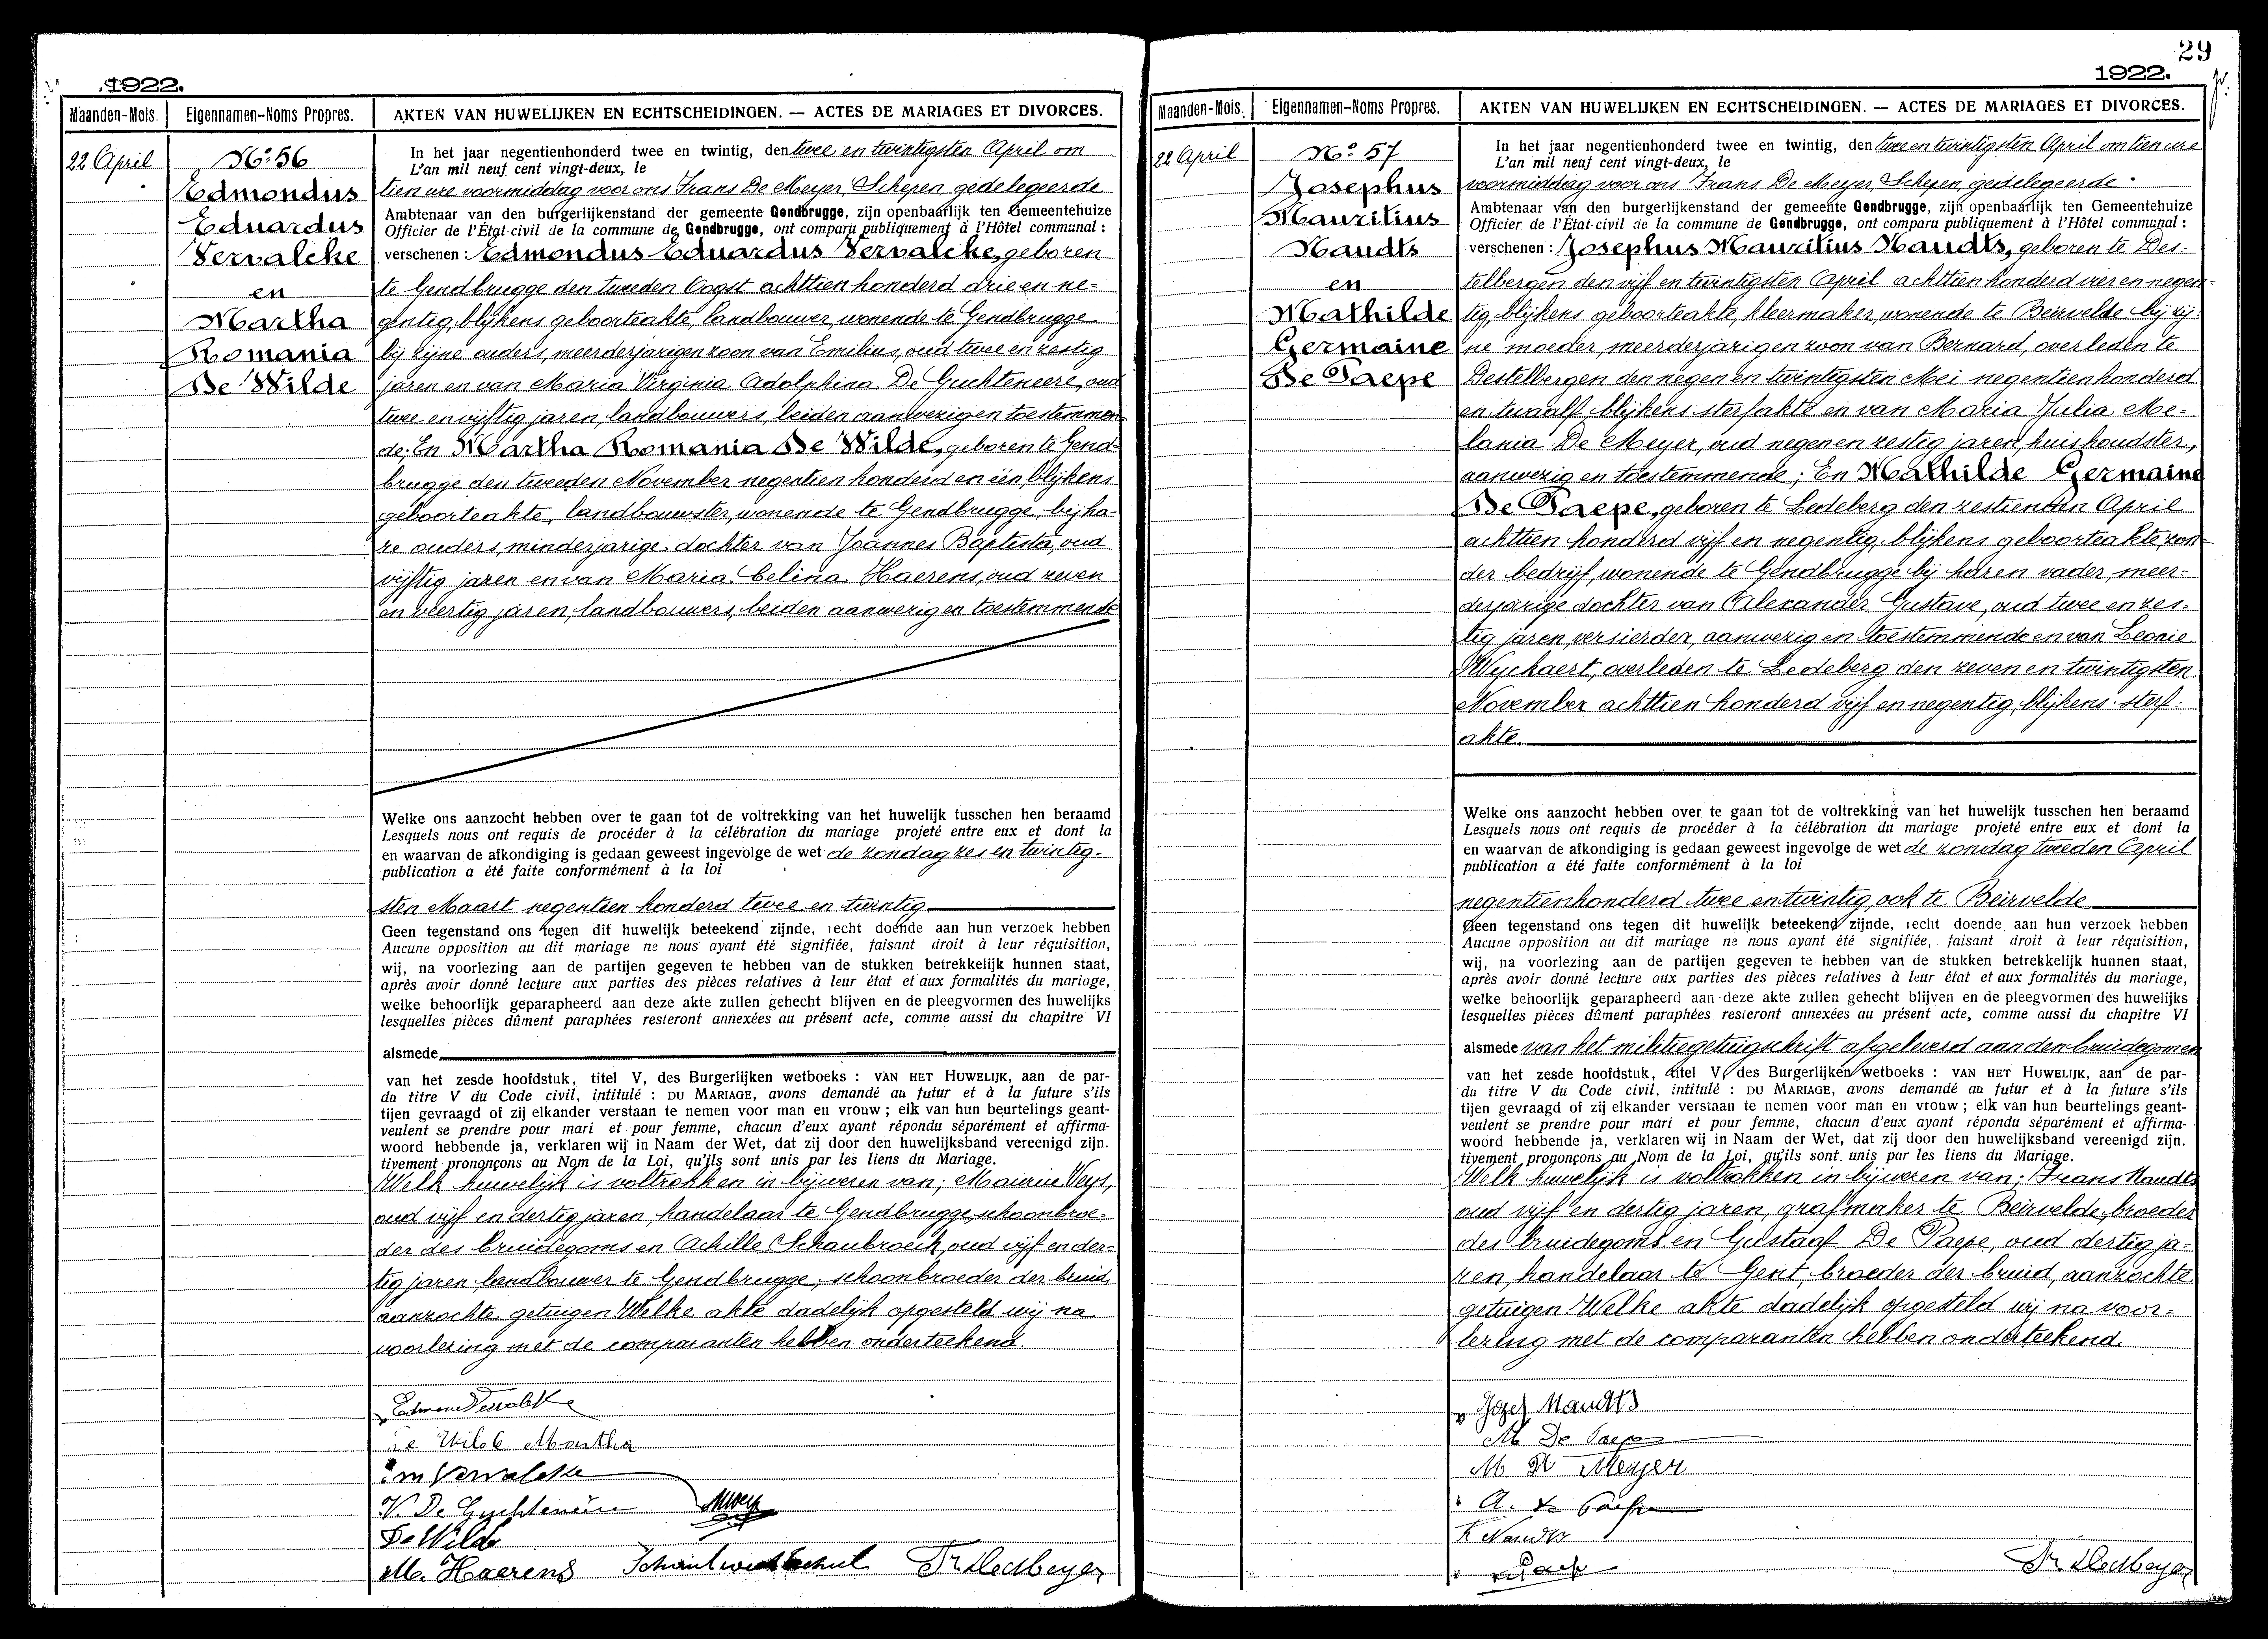 1922.
Maanden-Mois.
Eigennamen-Noms Propres.
AKTEN VAN HUWELIJKEN EN ECHTSCHEIDINGEN. — ACTES DE MARIAGES ET DIVORCES.
22 April
No. 56
Edmondus
Eduardus
Vervalcke
en
Martha
Romania
De Wilde
In het jaar negentienhonderd twee en twintig, den twee en twintigsten April om
L'an mil neuf cent vingt-deux, le
tien ure voormiddag voor ons Frans De Meyer, Schepen, gedelegeerde
Ambtenaar van den burgerlijkenstand der gemeente Gendbrugge, zijn openbaarlijk ten Gemeentehuize
Officier de l'État-civil de la commune de Gendbrugge, ont comparu publiquement à l'Hôtel communal :
verschenen : Edmondus Eduardus Vervalcke, geboren
te Gendbrugge den tweeden Oogst achttien honderd drie en ne-
gentig, blijkens geboorteakte, landbouwer, wonende te Gendbrugge
bij zijne ouders, meerderjarigen zoon van Emilius, oud twee en zestig
jaren en van Maria Virginia Adolphina De Guchteneere, oud
twee en vijftig jaren, landbouwers, beiden aanwezig en toestemmen-
de; En Martha Romania De Wilde, geboren te Gend-
brugge den tweeden November negentien honderd en één, blijkens
geboorteakte, landbouwster, wonende te Gendbrugge, bij ha-
re ouders, minderjarige dochter van Joannes Baptista, oud
vijftig jaren en van Maria Celina Haerens, oud zeven
en veertig jaren, landbouwers, beiden aanwezig en toestemmende
Welke ons aanzocht hebben over te gaan tot de voltrekking van het huwelijk tusschen hen beraamd
Lesquels nous ont requis de procéder à la célébration du mariage projeté entre eux et dont la
en waarvan de afkondiging is gedaan geweest ingevolge de wet de zondag zes en twintig-
publication a été faite conformément à la loi
sten Maart negentien honderd twee en twintig
Geen tegenstand ons tegen dit huwelijk beteekend zijnde, recht doende aan hun verzoek hebben
Aucune opposition au dit mariage ne nous ayant été signifiée, faisant droit à leur réquisition,
wij, na voorlezing aan de partijen gegeven te hebben van de stukken betrekkelijk hunnen staat,
après avoir donné lecture aux parties des pièces relatives à leur état et aux formalités du mariage,
welke behoorlijk geparapheerd aan deze akte zullen gehecht blijven en de pleegvormen des huwelijks
lesquelles pièces dûment paraphées resteront annexées au présent acte, comme aussi du chapitre VI
alsmede
van het zesde hoofdstuk, titel V, des Burgerlijken wetboeks : VAN HET HUWELIJK, aan de par-
du titre V du Code civil, intitulé : DU MARIAGE, avons demandé au futur et à la future s'ils
tijen gevraagd of zij elkander verstaan te nemen voor man en vrouw ; elk van hun beurtelings geant-
veulent se prendre pour mari et pour femme, chacun d'eux ayant répondu séparément et affirma-
woord hebbende ja, verklaren wij in Naam der Wet, dat zij door den huwelijksband vereenigd zijn.
tivement prononçons au Nom de la Loi, qu'ils sont unis par les liens du Mariage.
Welk huwelijk is voltrokken in bijwezen van; Maurice Veys,
oud vijf en dertig jaren, handelaar te Gendbrugge, schoonbroe-
der des bruidegoms en Achille Schaubroeck, oud vijf en der-
tig jaren, landbouwer te Gendbrugge, schoonbroeder der bruid,
aanzochte getuigen. Welke akte dadelijk opgesteld wij na
voorlezing met de comparanten hebben onderteekend.
Edmond Vervalcke
De Wilde Martha
Em Vervalcke
V. De Guchteneire
MVeys
De Wilde
M. Haerens
Fr. DeMeyer
29
1922.
Maanden-Mois.
Eigennamen-Noms Propres.
AKTEN VAN HUWELIJKEN EN ECHTSCHEIDINGEN. — ACTES DE MARIAGES ET DIVORCES.
22 April
No. 57
Josephus
Mauritius
Naudts
en
Mathilde
Germaine
De Paepe
In het jaar negentienhonderd twee en twintig, den twee en twintigsten April om tien ure
L'an mil neuf cent vingt-deux, le
voormiddag voor ons Frans De Meyer, Schepen, gedelegeerde
Ambtenaar van den burgerlijkenstand der gemeente Gendbrugge, zijn openbaarlijk ten Gemeentehuize
Officier de l'État-civil de la commune de Gendbrugge, ont comparu publiquement à l'Hôtel communal :
verschenen : Josephus Mauritius Naudts, geboren te Des-
telbergen den vijf en twintigsten April achttien honderd vier en negen-
tig, blijkens geboorteakte, kleermaker, wonende te Beirvelde bij zij-
ne moeder, meerderjarigen zoon van Bernard, overleden te
Destelbergen den negen en twintigsten Mei negentienhonderd
en twaalf blijkens sterfakte en van Maria Julia Me-
lania De Meyer, oud negen en zestig jaren, huishoudster,
aanwezig en toestemmende; En Mathilde Germaine
De Paepe, geboren te Ledeberg den zestienden April
achttien honderd vijf en negentig, blijkens geboorteakte, zon-
der bedrijf, wonende te Gendbrugge bij haren vader, meer-
derjarige dochter van Alexander Gustave, oud twee en zes-
tig jaren, versierder, aanwezig en toestemmende en van Leonie
Wyckaert, overleden te Ledeberg den zeven en twintigsten
November achttien honderd vijf en negentig, blijkens sterf-
akte.
Welke ons aanzocht hebben over te gaan tot de voltrekking van het huwelijk tusschen hen beraamd
Lesquels nous ont requis de procéder à la célébration du mariage projeté entre eux et dont la
en waarvan de afkondiging is gedaan geweest ingevolge de wet de zondag tweeden April
publication a été faite conformément à la loi
negentienhonderd twee en twintig, ook te Beirvelde
Geen tegenstand ons tegen dit huwelijk beteekend zijnde, recht doende aan hun verzoek hebben
Aucune opposition au dit mariage ne nous ayant été signifiée, faisant droit à leur réquisition,
wij, na voorlezing aan de partijen gegeven te hebben van de stukken betrekkelijk hunnen staat,
après avoir donné lecture aux parties des pièces relatives à leur état et aux formalités du mariage,
welke behoorlijk geparapheerd aan deze akte zullen gehecht blijven en de pleegvormen des huwelijks
lesquelles pièces dûment paraphées resteront annexées au présent acte, comme aussi du chapitre VI
alsmede van het militiegetuigschrift afgeleverd aan den bruidegomen
van het zesde hoofdstuk, titel V, des Burgerlijken wetboeks : VAN HET HUWELIJK, aan de par-
du titre V du Code civil, intitulé : DU MARIAGE, avons demandé au futur et à la future s'ils
tijen gevraagd of zij elkander verstaan te nemen voor man en vrouw ; elk van hun beurtelings geant-
veulent se prendre pour mari et pour femme, chacun d'eux ayant répondu séparément et affirma-
woord hebbende ja, verklaren wij in Naam der Wet, dat zij door den huwelijksband vereenigd zijn.
tivement prononçons au Nom de la Loi, qu'ils sont unis par les liens du Mariage.
Welk huwelijk is voltrokken in bijwezen van; Frans Naudts
oud vijf en dertig jaren, grafmaker te Beirvelde, broeder
des bruidegoms en Gustaaf De Paepe, oud dertig ja-
ren, handelaar te Gent, broeder der bruid, aanzochte
getuigen. Welke akte dadelijk opgesteld wij na voor-
lezing met de comparanten hebben onderteekend.
Jozef Naudts
M De Paepe
M De Meyer
A. De Paepe
F Naudts
Fr. DeMeyer